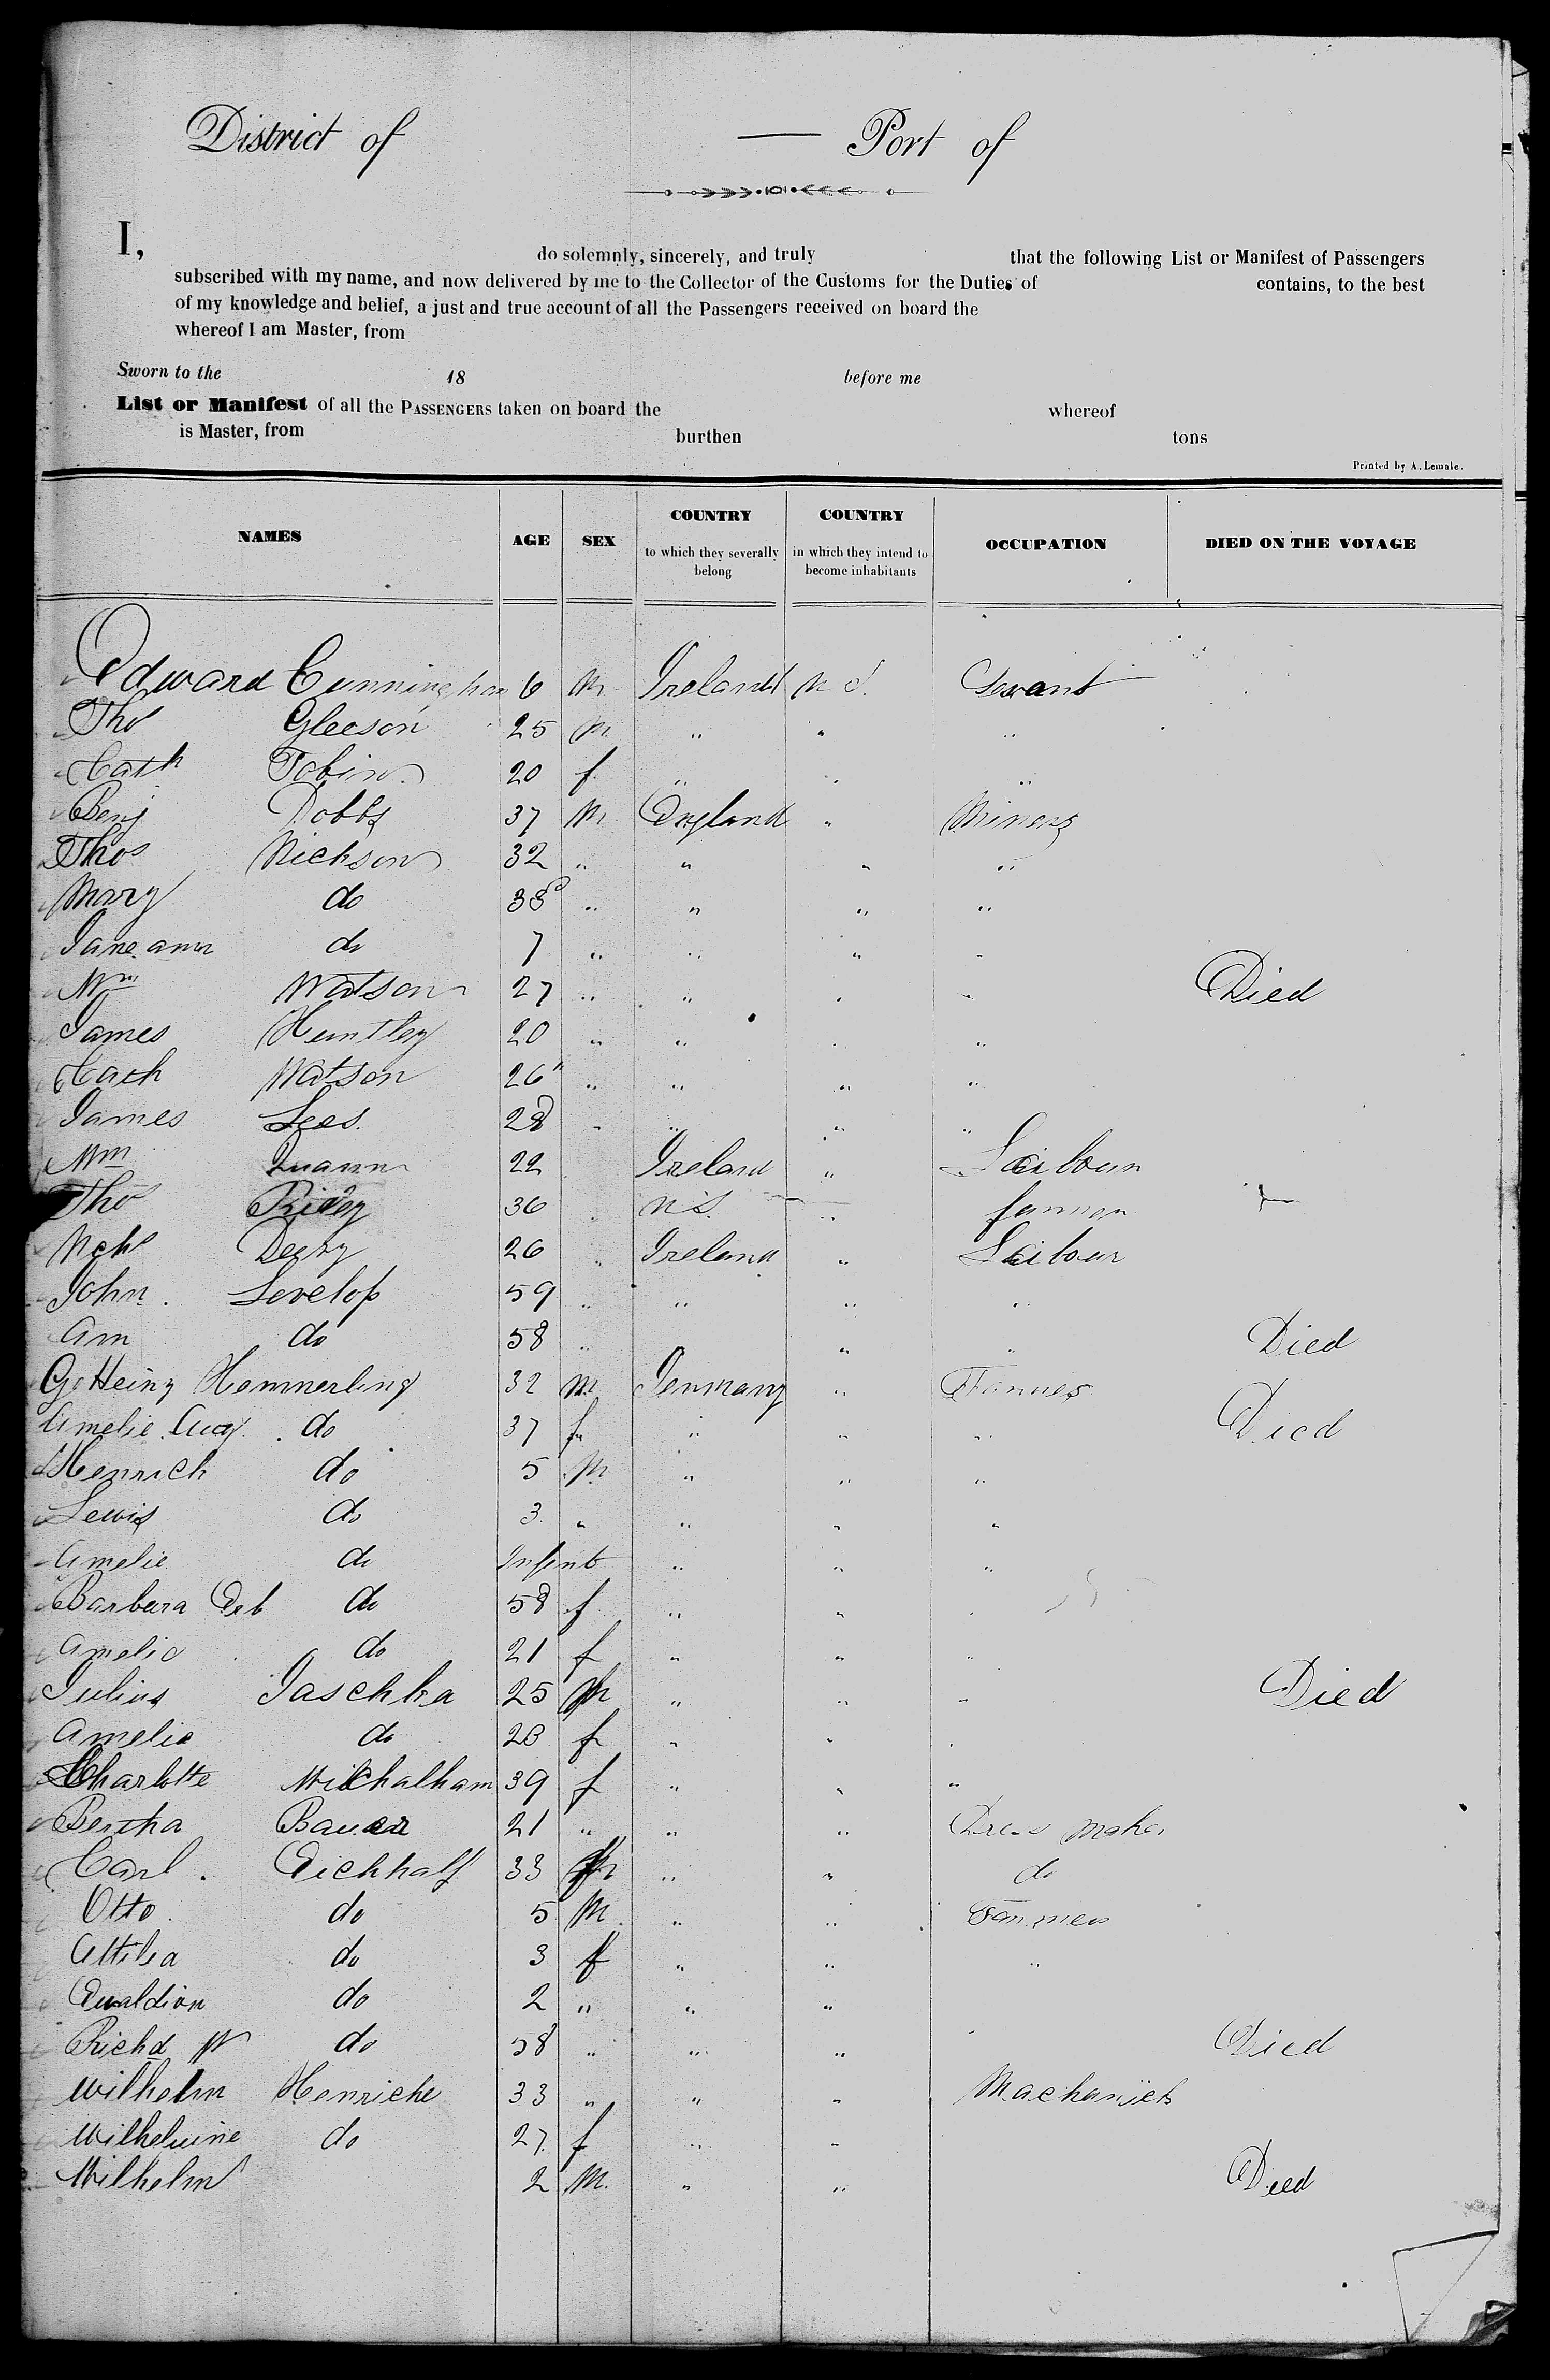 District of — Port of
I, do solemnly, sincerely, and truly that the following List or Manifest of Passengers
subscribed with my name, and now delivered by me to the Collector of the Customs for the Duties of contains, to the best
of my knowledge and belief, a just and true account of all the Passengers received on board the
whereof I am Master, from
Sworn to the 18 before me
List or Manifest of all the PASSENGERS taken on board the whereof
is Master, from burthen tons
Printed by A. Lemale.
NAMES AGE SEX COUNTRY to which they severally belong COUNTRY in which they intend to become inhabitants OCCUPATION DIED ON THE VOYAGE
Edward Cunningham 6 m Ireland Servant
Tho Gleeson 25 m " " "
Cath Tobin 20 f " " "
Benj Dobbs 37 M England " Miners
Thos Nickson 32 " " " "
Mary do 38 " " " "
Jane ann do 7 " " " "
Wm Watson 27 " " " " Died
James Huntley 20 " " " "
Cath Watson 26 " " " "
James Lees 28 " " " "
Wm 22 Ireland "
Tho 36 " farmer
Derry 26 " Ireland " Laibour
John Lovelop 59 " " " "
Ann do 58 " " " Died
G Heinz Hemmerling 32 m Germany " Farmer
Amelie Aug. do 37 f " " " Died
Henrich do 5 M " " "
Lewis do 3 " " " "
Amelie do Infant " " "
Barbara do 58 f " "
Amelie do 21 f " " "
Julius Jaschka 25 M " " " Died
Amelie do f " "
Charlotte Milchalham 39 f " " "
Bertha Bauer 21 " " " Dress Maker
Carl Eichhalf 33 " " do
Otto do 5 M " " Farmer
Attilia do 3 f " " "
Ewaldian do 2 " " "
Richd W do 58 " " " Died
Wilhelm Henriche 33 " " " Machanicks
Wilhelmine do 27 f " "
Wilhelm 2 M. " " Died